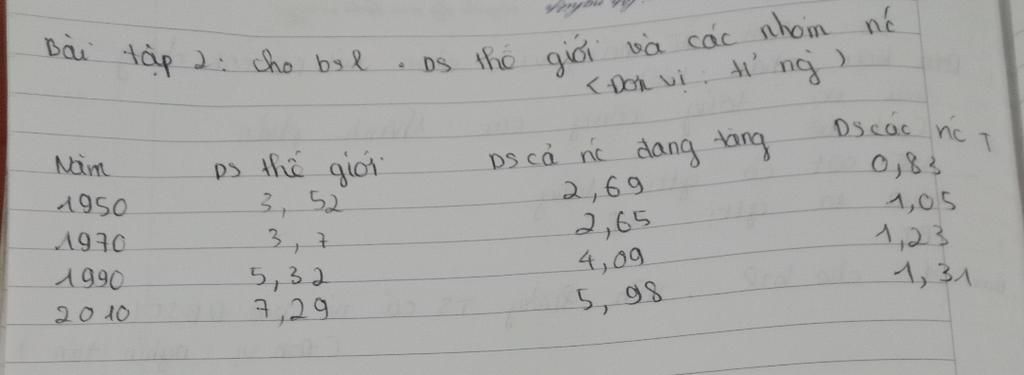 Bài tập 2: cho bsl. DS thế giới và các nhóm nć
(Đơn vị: tỉ ng)
Năm DS thế giới DS cả nć đang tăng DS các nć T
1950 3,52 2,69 0,83
1970 3,7 2,65 1,05
1990 5,32 4,09 1,23
2010 7,29 5,98 1,31